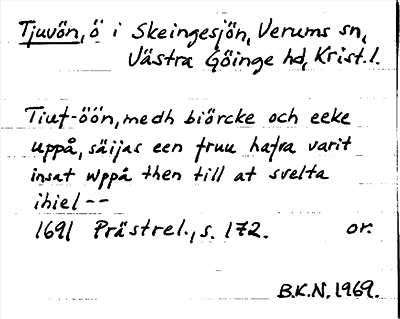 Tjuvön, ö i Skeingesjön, Verums sn,
Västra Göinge hd, Krist. l.
Tiuf-öön, medh biörcke och eeke
uppå, säijas een fruu hafra varit
insat wppå then till at svelta
ihiel --
1691 Prästrel., s. 172. or.
B.K.N. 1969.